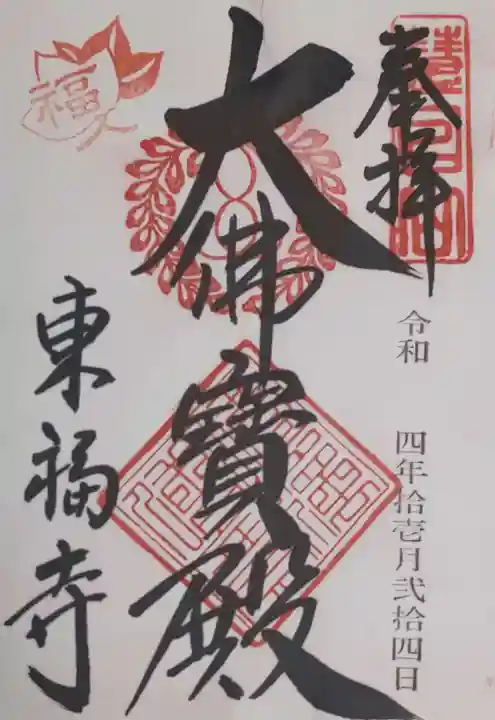 奉拝
令和 四年拾壱月弐拾四日
大佛寶殿
東福寺
福